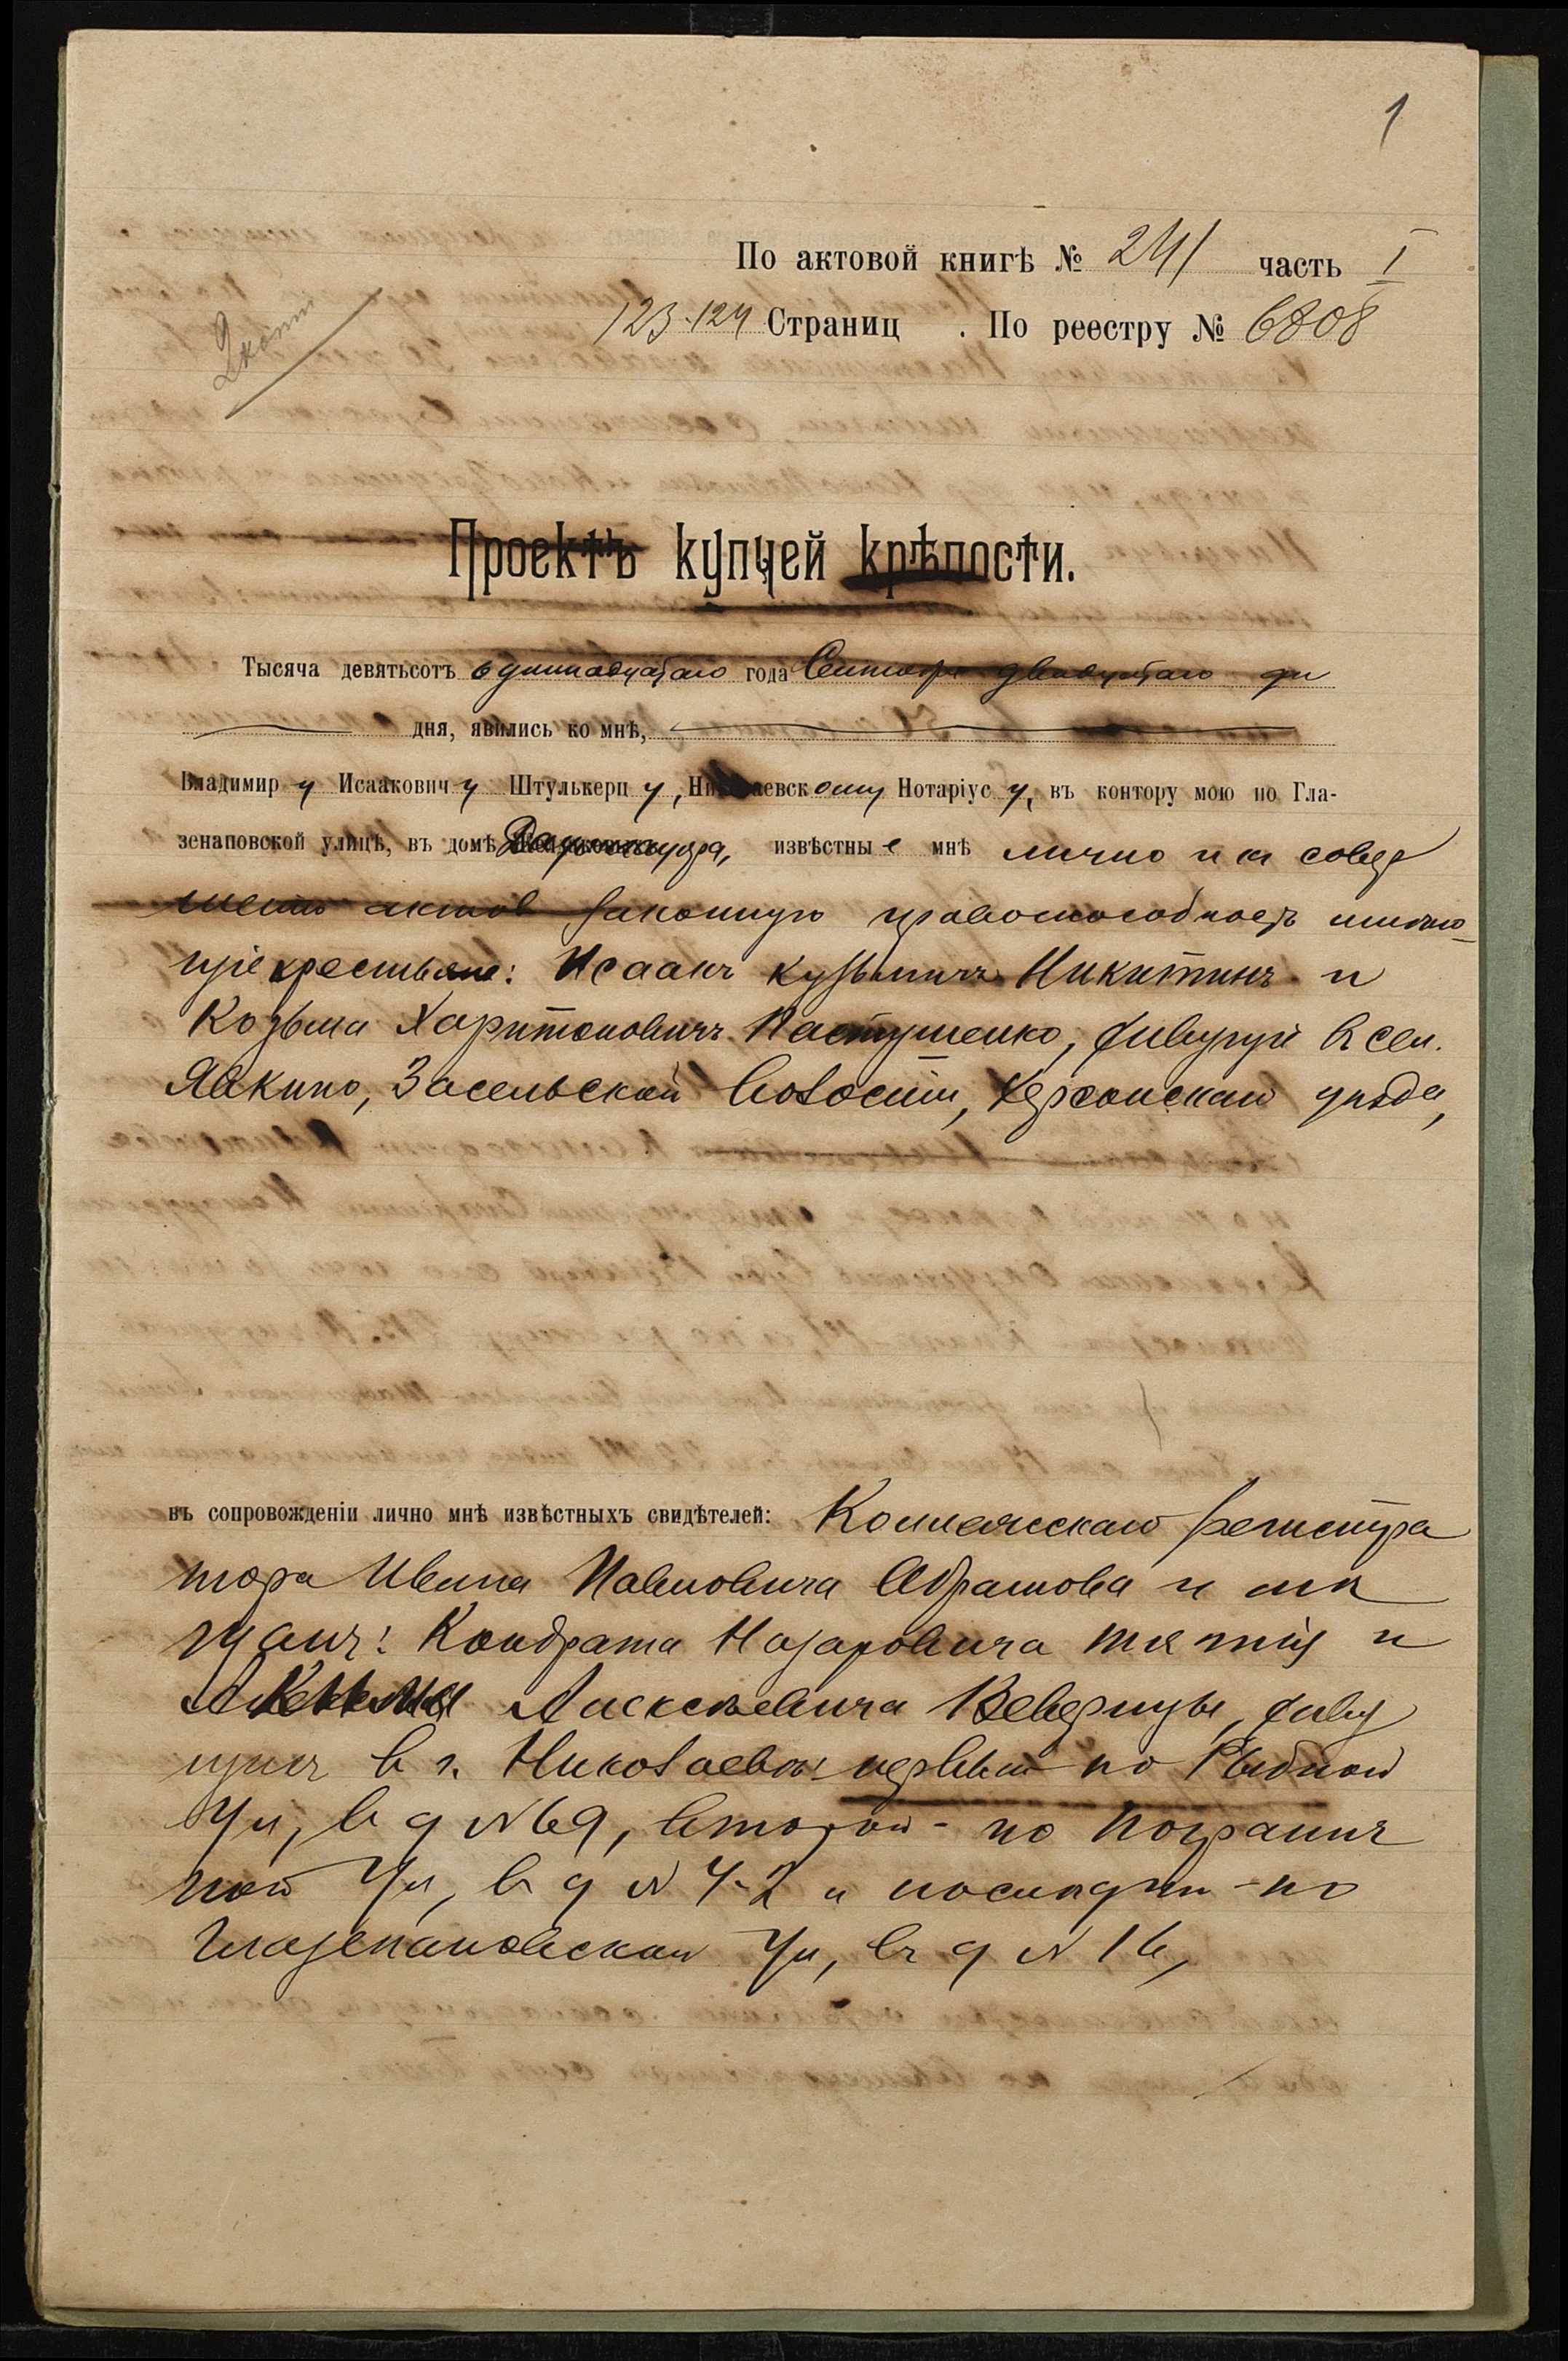 1
По актовой книгѣ № 241 часть I
123-124 Страниц . По реестру № 6808
2 копіи
Проектъ купчей крѣпости.
Тысяча девятьсотъ одиннадцатаго года Сентября двадцатаго дн
дня, явились ко мнѣ,
Владимир у Исаакович у Штулькерц у, Николаевск ому Нотаріус у, въ контору мою по Гла-
зенаповской улицѣ, въ домѣ извѣстны е мнѣ лично и къ совер
шенію актовъ законную правоспособность имѣю-
щіе крестьяне: Исаакъ Кузьмичъ Никитинъ и
Козьма Харитоновичъ Пастушенко, живущіе въ сел.
Явкино, Засельской волости, Херсонскаго уѣзда,
въ сопровожденіи лично мнѣ извѣстныхъ свидѣтелей: Коллежскаго Регистра
тора Ивана Павловича Абрамова и мѣ
щанъ: Кондрата Назаровича и
Алексѣевича живу
щихъ въ г. Николаевѣ: первый по Рыбной
ул, въ д № 69, второй - по Погранич
ной ул, въ д № 42 и послѣдній - по
Глазенаповской ул, въ д № 16,